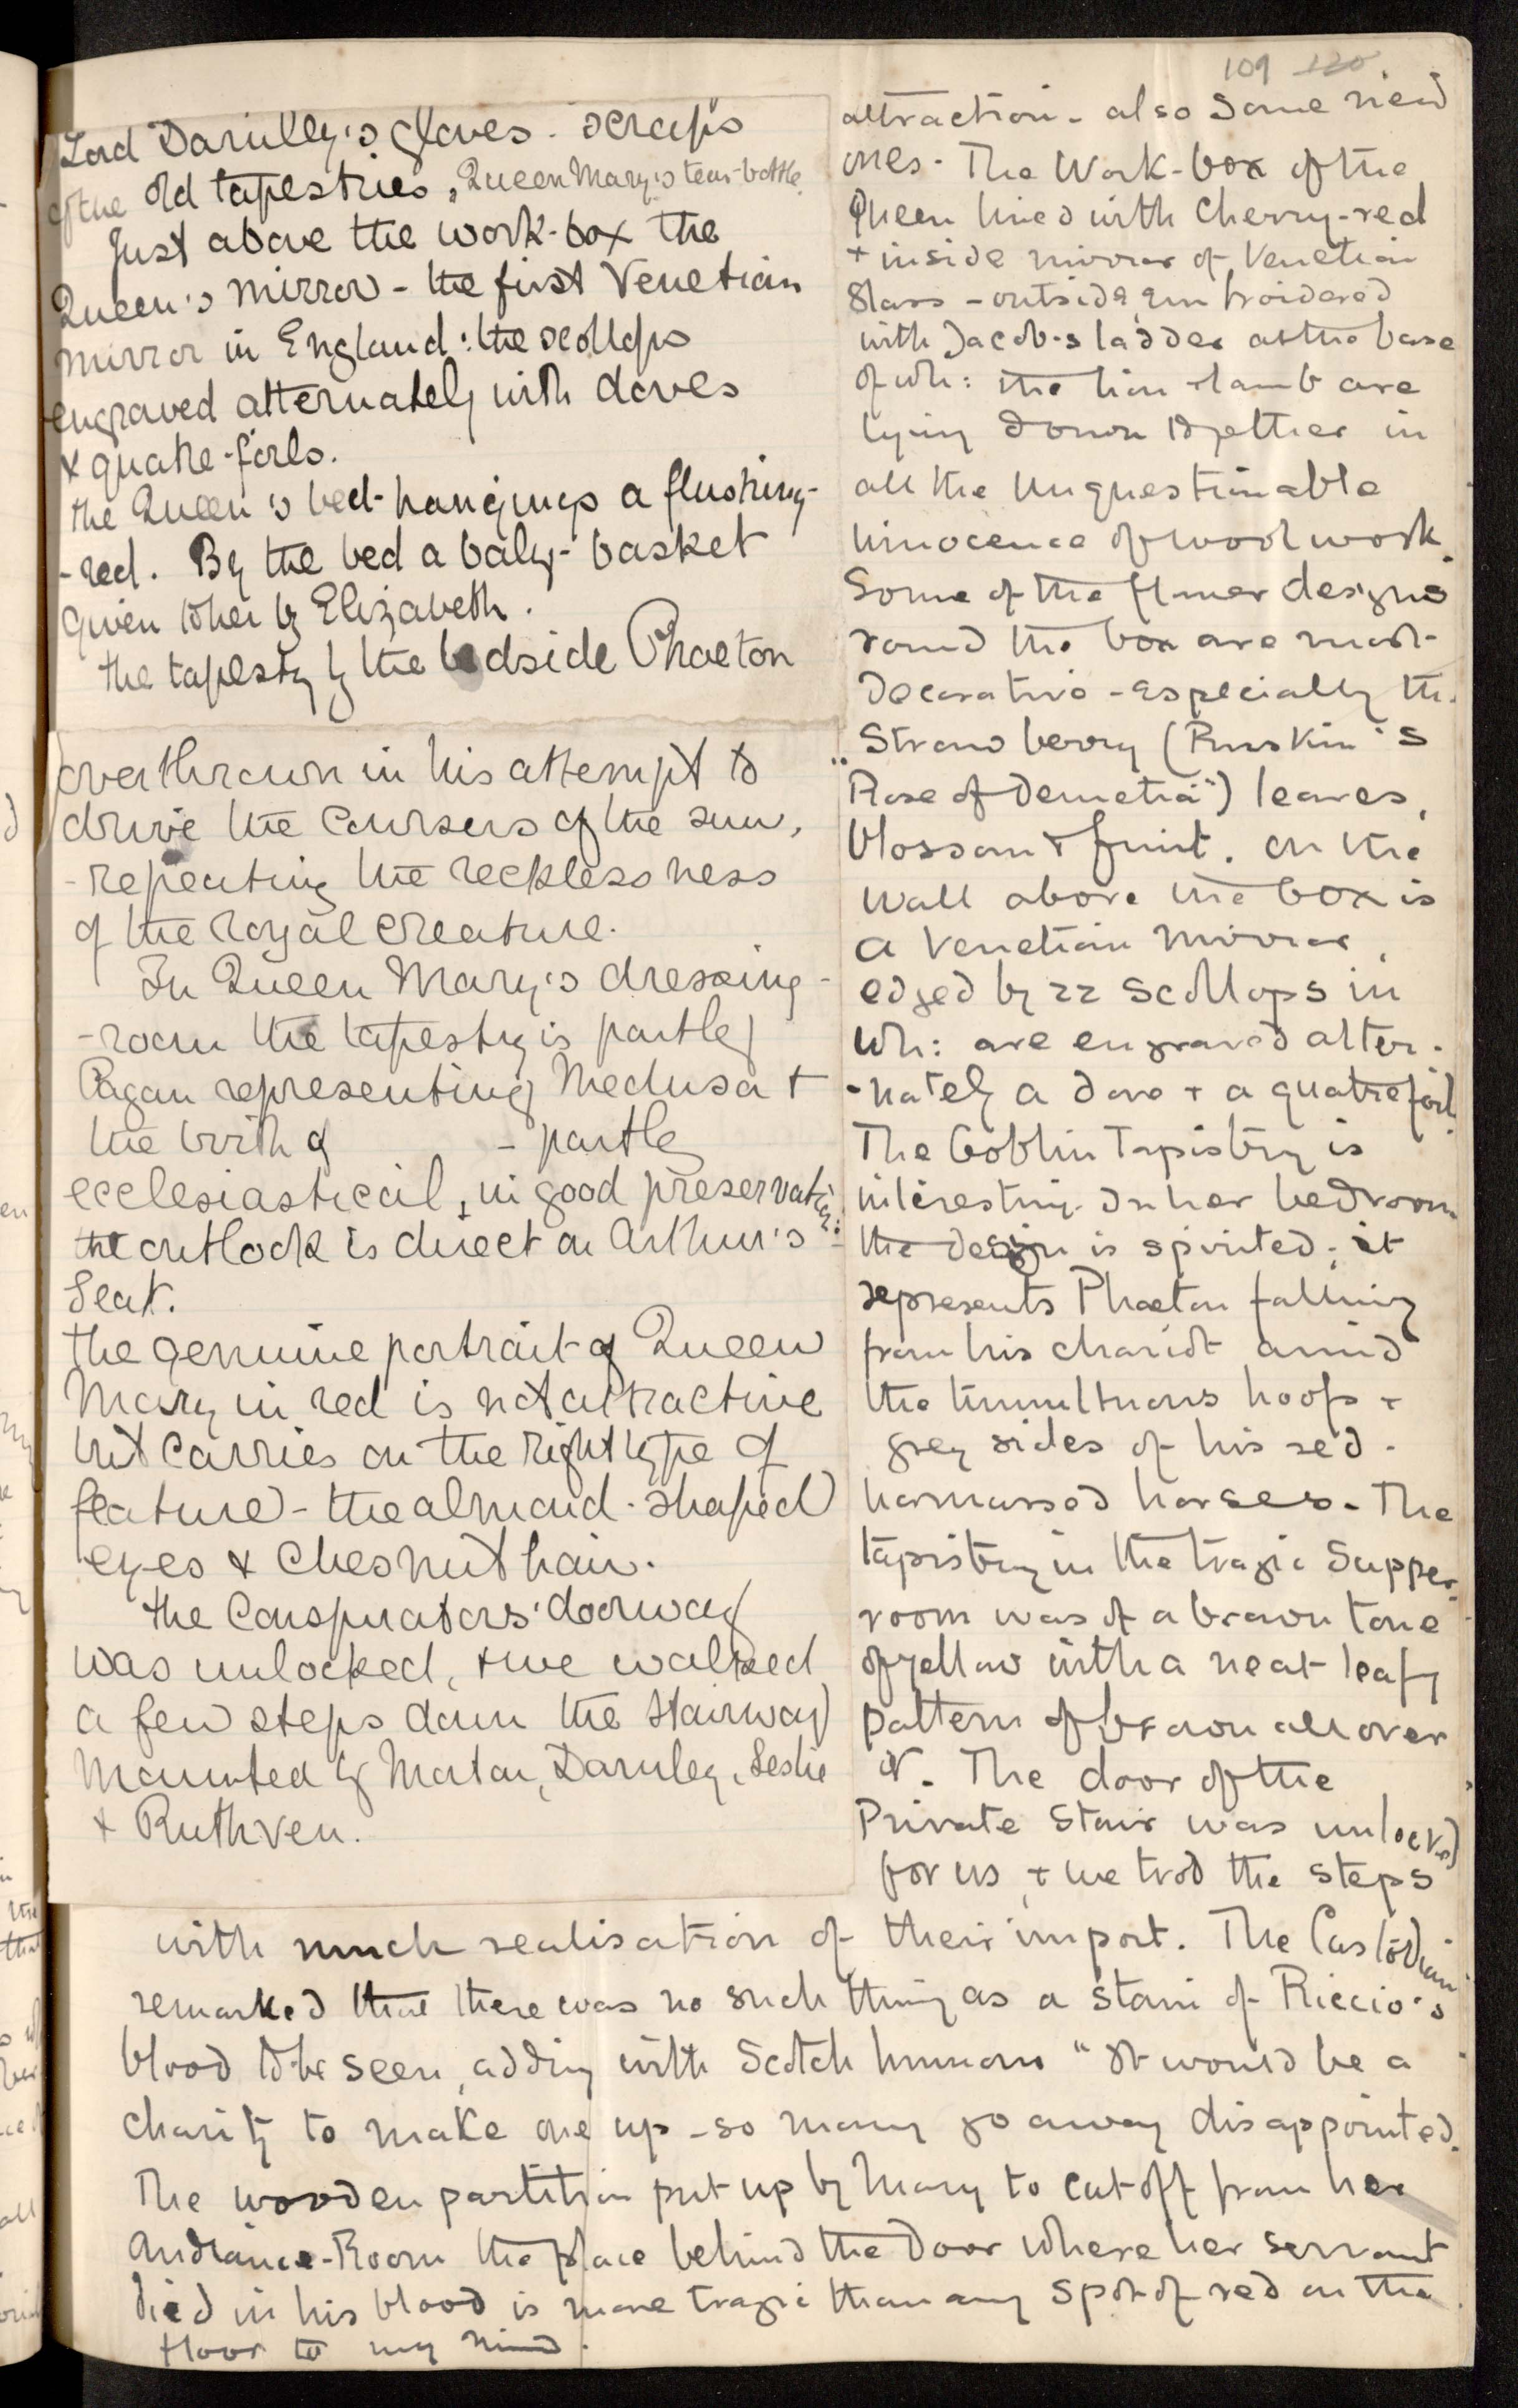 109 120
Lord Darnlley's gloves. scraps
of the old tapestries, Queen Mary's tear-bottle.
Just above the work-box the
Queen's mirror - the first Venetian
mirror in England: the scollops
engraved alternately with doves
& quatre-foils.
the Queen's bed-hangings a flushing-
-red. By the bed a baby-basket
given to her by Elizabeth.
the tapestry by the bedside Phaeton
overthrown in his attempt to
drive the Coursers of the sun,
- repeating the recklessness
of the royal creature.
In Queen Mary's dressing-
-room the tapestry is partly
Pagan representing Medusa &
the birth of - partly
ecclesiastical, in good preservation:
the outlook is direct on Arthur's -
Seat.
the genuine portrait of Queen
Mary in red is not attractive
but carries on the right type of
feature - the almond-shaped
eyes & Chesnut hair.
the Conspirators' doorway
was unlocked, & we walked
a few steps down the stairway
mounted by Morton, Darnley, Leslie
& Ruthven.
attraction - also some new
ones - The Work-box of the
Queen lined with Cherry-red
+ inside mirror of Venetian
Glass - outside embroidered
with Jacob's ladder at the base
of wh: the lion + lamb are
lying down together in
all the unquestionable
innocence of wool work.
Some of the flower designs
round the box are most
decorative - especially the
Strawberry (Ruskin's
"Rose of Demetria") leaves,
blossom & fruit. On the
wall above the box is
a Venetian Mirror,
edged by 22 Scollops in
wh: are engraved alter-
-nately a dove + a quatrefoil
The Goblin Tapistry is
interesting. In her bedroom
the design is spirited; it
represents Phaeton falling
from his chariot amid
the tumultuous hoofs +
grey sides of his red-
harnassed horses. The
tapistry in the tragic Supper-
room was of a brown tone
of yellow with a neat leafy
pattern of brown all over
it. The door of the
Private Stair was unlocked
for us, + we trod the steps
with much realisation of their import. The Custodian
remarked that there was no such thing as a stain of Riccio's
blood to be seen, adding with Scotch humour "It would be a
charity to make one up - so many go away disappointed.
The wooden partition put up by Mary to cut off from her
Audiance-Room the place behind the Door where her servant
died in his blood is more tragic than any spot of red on the
floor to my mind.